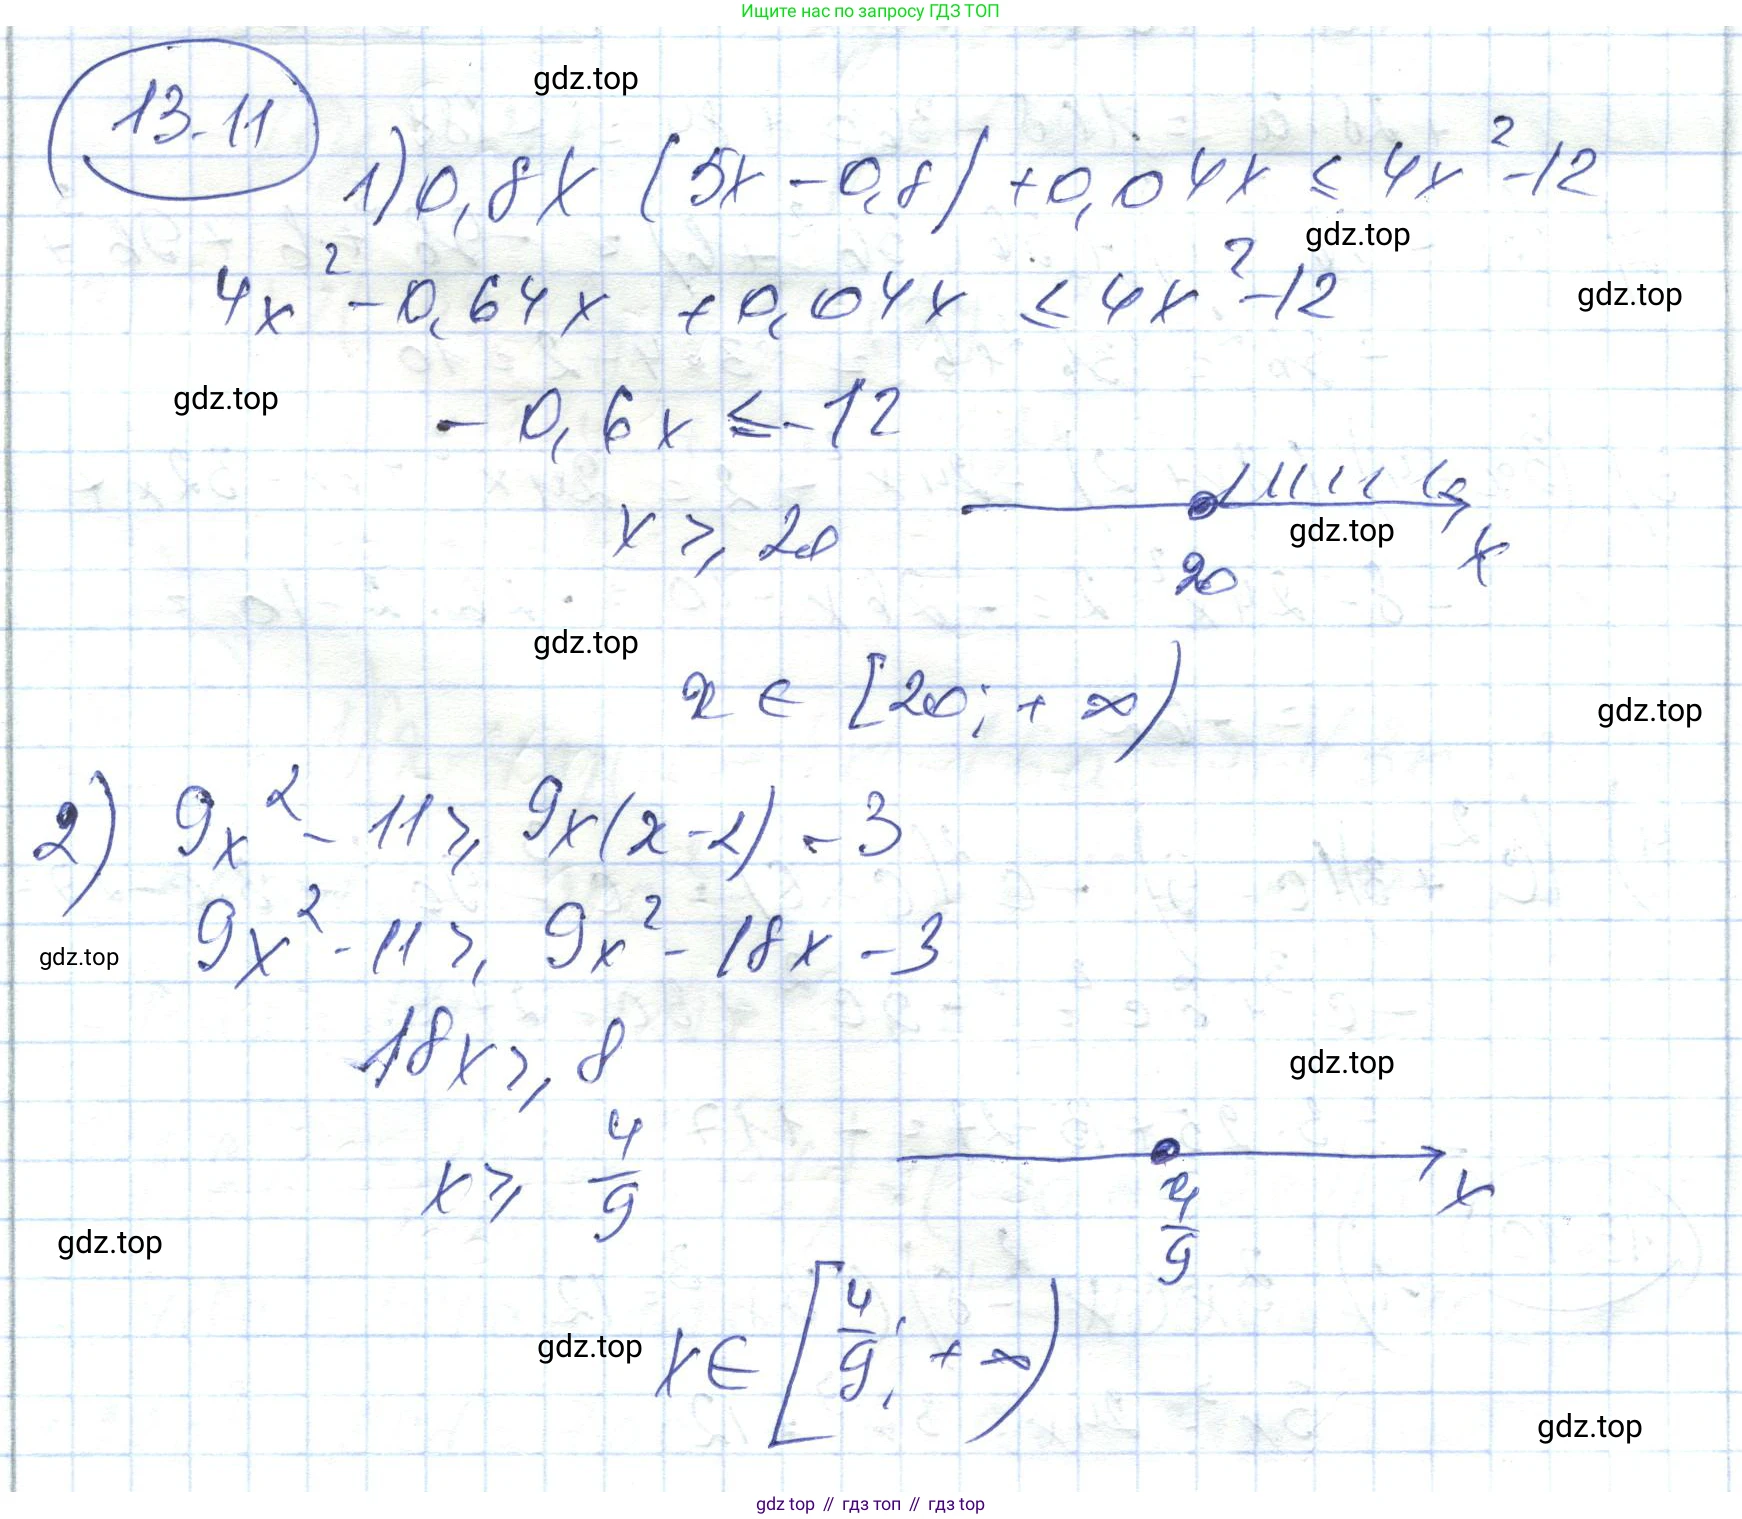 Ищите нас по запросу ГДЗ ТОП
13.11
gdz.top
1) 0,8x (5x - 0,8) + 0,04x ≤ 4x² - 12
gdz.top
4x² - 0,64x + 0,04x ≤ 4x² - 12
gdz.top
gdz.top
- 0,6x ≤ -12
x ≥ 20
gdz.top
20
x
gdz.top
x ∈ [20; + ∞)
gdz.top
2) 9x² - 11 ≥ 9x(x - 2) - 3
9x² - 11 ≥ 9x² - 18x - 3
gdz.top
18x ≥ 8
gdz.top
x ≥ 4/9
4/9
x
gdz.top
x ∈ [4/9; + ∞)
gdz.top
gdz.top
gdz top // гдз топ // гдз top